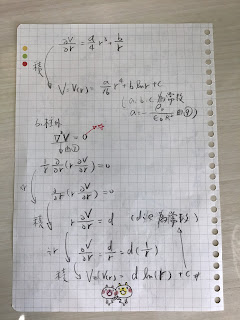 ∂V/∂r = a/4 r³ + b/r
積 V=V(r) = a/16 r⁴ + b ln r + c
(a.b.c 為常數
a = - ρ₀/ε₀R²
b.
∇²V = 0
1/r ∂/∂r (r ∂V/∂r) = 0
∂/∂r (r ∂V/∂r) = 0
積 r ∂V/∂r = d (d.e 為常數)
÷r ∂V/∂r = d/r = d(1/r)
積 V=V(r) = d ln(r) + e